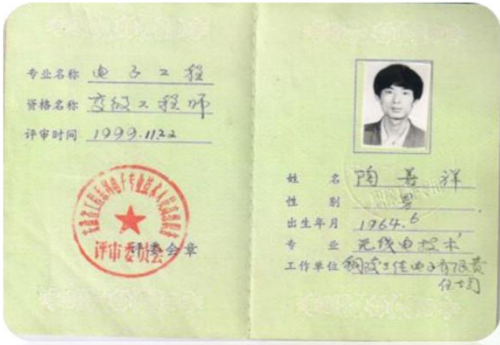 专业名称 电子工程
资格名称 高级工程师
评审时间 1999.11.22
评审委员会
评委会章
姓名 陶善祥
性别 男
出生年月 1964.6
专业 无线电技术
工作单位 铜陵三佳电子有限责
任公司